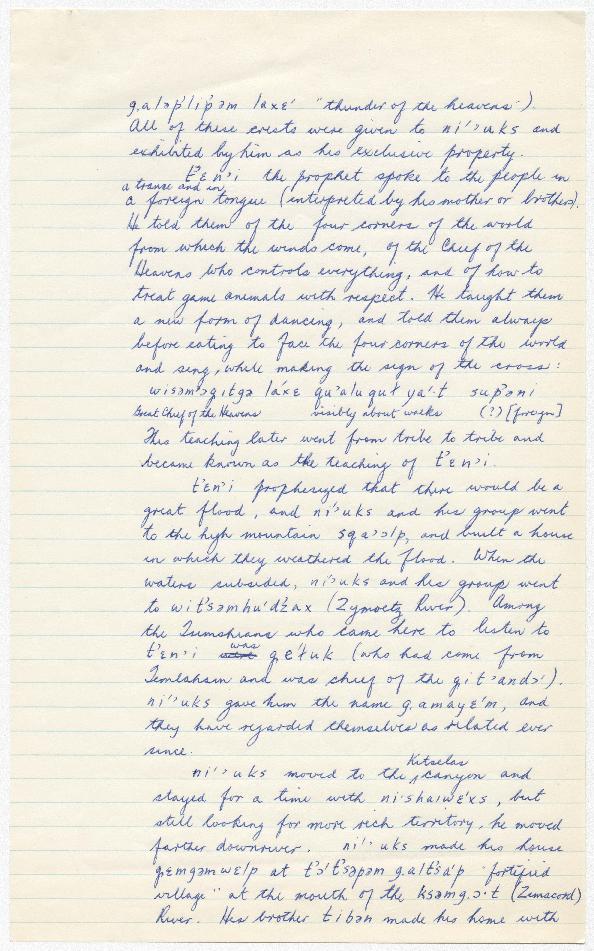 g.aləp'lip'əm laxɛ' "thunder of the heavens").
All of these crests were given to ni'ɔuks and
exhibited by him as his exclusive property.
t'ɛnɔi the prophet spoke to the people in
a transe and in
a foreign tongue (interpreted by his mother or brother).
He told them of the four corners of the world
from which the winds come, of the Chief of the
Heavens who controls everything, and of how to
treat game animals with respect. He taught them
a new form of dancing, and told them always
before eating to face the four corners of the world
and sing, while making the sign of the cross:
wisəm'ɔgitgə láxɛ qu'aluguł ya'·t sup'əni
Great Chief of the Heavens visibly about walks (?) [foreign]
This teaching later went from tribe to tribe and
became known as the teaching of t'ɛnɔi.
t'ɛnɔi prophesized that there would be a
great flood, and ni'ɔuks and his group went
to the high mountain sqa'ɔɔlp, and built a house
in which they weathered the flood. When the
waters subsided, ni'ɔuks and his group went
to wit'səmhu'dźax (Zymoetz River). Among
the Tsimshians who came here to listen to
t'ɛnɔi was gɛłuk (who had come from
Temlaham and was chief of the git'andɔ').
ni'ɔuks gave him the name g.amayɛ'm, and
they have regarded themselves as related ever
since.
ni'ɔuks moved to the Kitselas canyon and
stayed for a time with nishaiwɛ'xs, but
still looking for more rich territory, he moved
farther downriver. ni'ɔuks made his house
gɛmgəmwɛlp at t'ɔ't'səpəm g.alt'sa'p "fortified
village" at the mouth of the ksəmg.ɔ·t (Zimacord)
River. His brother tibən made his home with